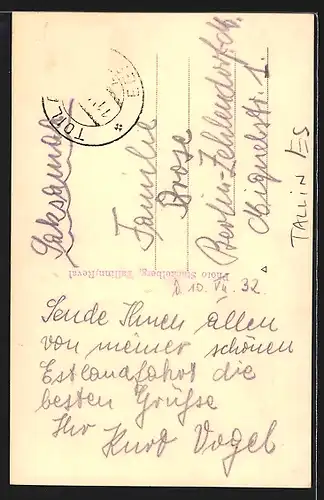 Saksamaa
Familie
Brose
Berlin-Zehlendorf
Miquelstr. 1.
TALLIN ES
Photo Stackelberg, Tallinn/Reval
D 10. VII. 32.
Sende Ihnen allen
von meiner schönen
Estlandfahrt die
besten Grüße
Ihr Kurt Vogel